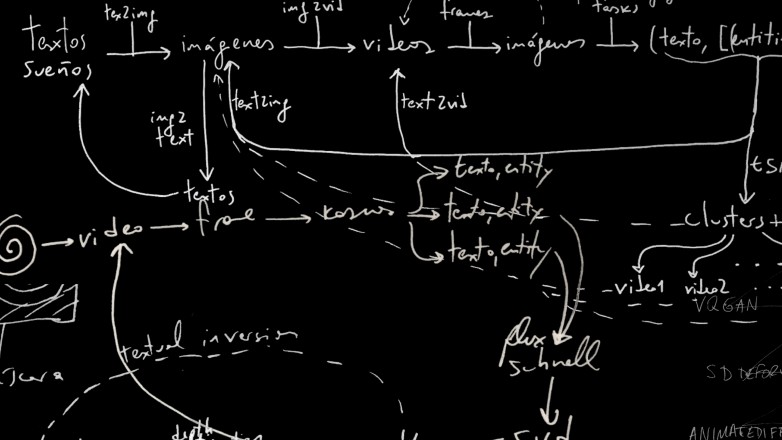 tex2img
img2vid
frames
tasks
textos
sueños
imágenes
videos
imágenes
(texto, [(entiti
img2
text
text2img
text2vid
textos
texto, entity
video
frame
kosmos
texto, entity
texto, entity
clusters +
video1
video2
VQGAN
textual inversion
flux
schnell
Jícara
SD DEFOR
depth
svd
ANIMATEDIFF